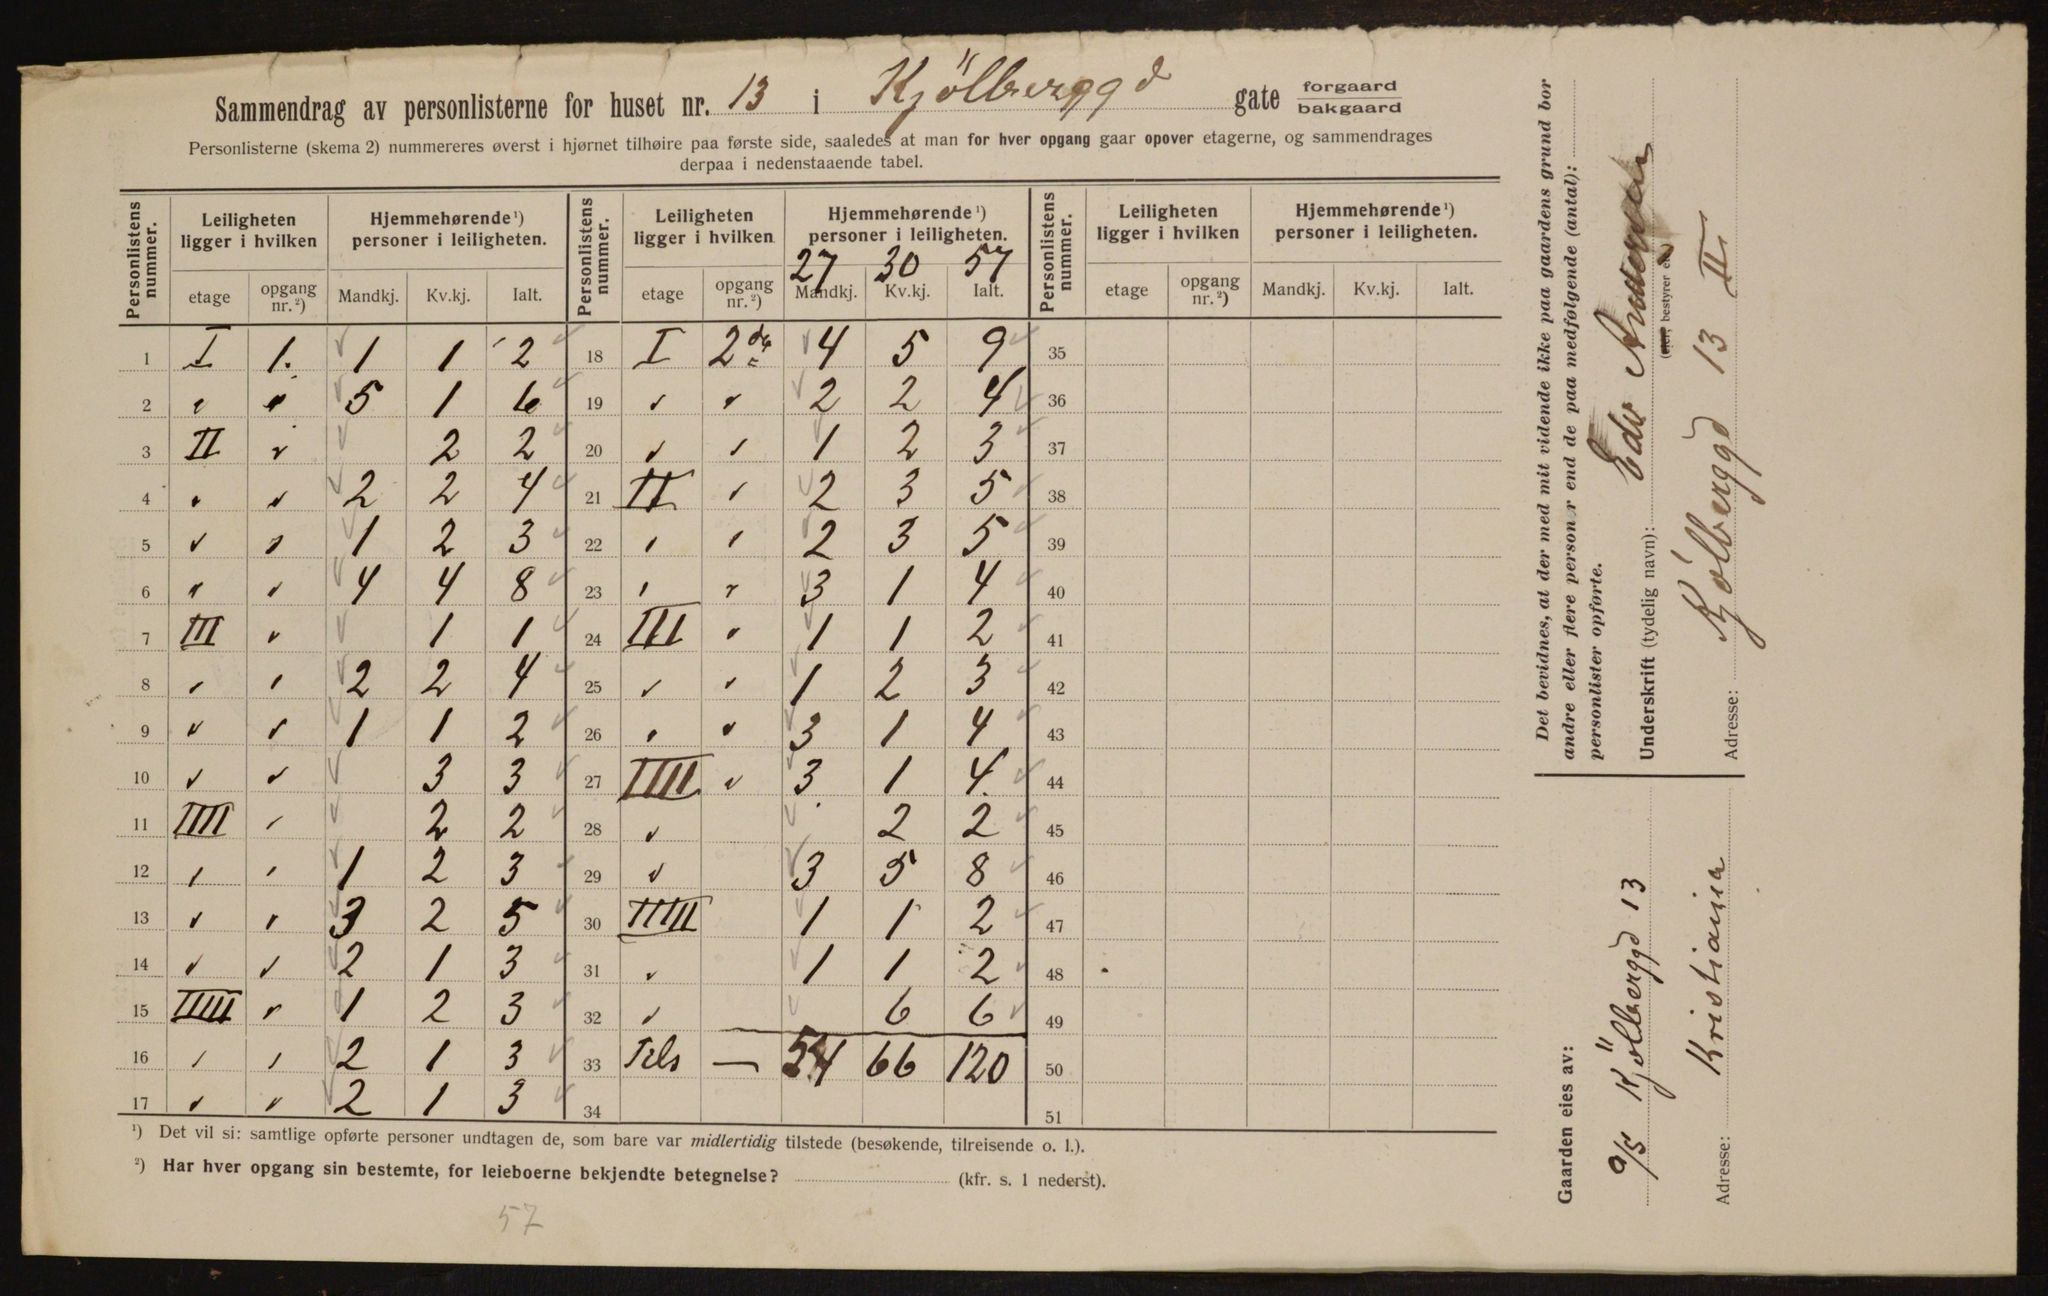 Sammendrag av personlisterne for huset nr. 13 i Kjölberggd gate forgaard bakgaard
Personlisterne (skema 2) nummereres øverst i hjørnet tilhøire paa første side, saaledes at man for hver opgang gaar opover etagerne, og sammendrages
derpaa i nedenstaaende tabel.
Personlistens nummer. Leiligheten ligger i hvilken Hjemmehørende ¹) personer i leiligheten. Personlistens nummer. Leiligheten ligger i hvilken Hjemmehørende ¹) personer i leiligheten. Personlistens nummer. Leiligheten ligger i hvilken Hjemmehørende ¹) personer i leiligheten.
27 30 57
etage opgang nr. ²) Mandkj. Kv.kj. Ialt. etage opgang nr. ²) Mandkj. Kv.kj. Ialt. etage opgang nr. ²) Mandkj. Kv.kj. Ialt.
1 I 1. 1 1 2 18 I 2 4 5 9 35
2 " " 5 1 6 19 " " 2 2 4 36
3 II " 2 2 20 " " 1 2 3 37
4 " " 2 2 4 21 II " 2 3 5 38
5 " " 1 2 3 22 " " 2 3 5 39
6 " " 4 4 8 23 " " 3 1 4 40
7 III " 1 1 24 III " 1 1 2 41
8 " " 2 2 4 25 " " 1 2 3 42
9 " " 1 1 2 26 " " 3 1 4 43
10 " " 3 3 27 IIII " 3 1 4. 44
11 IIII " 2 2 28 " 2 2 45
12 " " 1 2 3 29 " 3 5 8 46
13 " " 3 2 5 30 IIIII 1 1 2 47
14 " " 2 1 3 31 " 1 1 2 48
15 IIIII " 1 2 3 32 " 6 6 49
16 " " 2 1 3 33 Tils — 54 66 120 50
17 " " 2 1 3 34 51
¹) Det vil si: samtlige opførte personer undtagen de, som bare var midlertidig tilstede (besøkende, tilreisende o. l.).
²) Har hver opgang sin bestemte, for leieboerne bekjendte betegnelse? (kfr. s. 1 nederst).
57
Det bevidnes, at der med mit vidende ikke paa gaardens grund bor
andre eller flere personer end de paa medfølgende (antal):
personlister opførte.
Underskrift (tydelig navn): Edv Andersen
(eier, bestyrer e
Adresse: Kjølberggd 13 III
Gaarden eies av:
%s Kjölberggd 13
Adresse: Kristiania